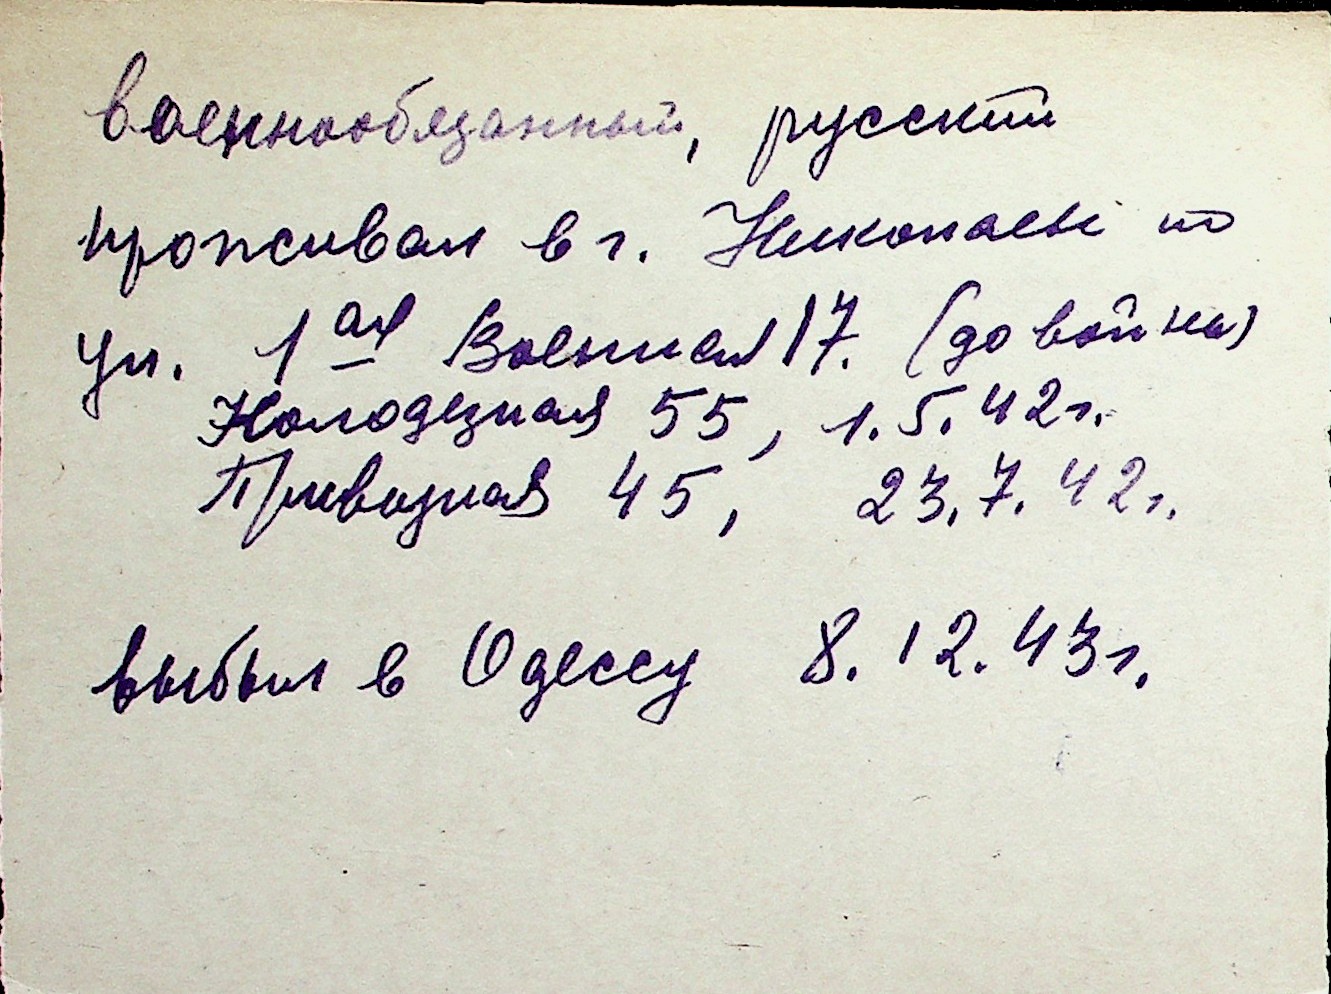 военнообязанный, русский
проживал в г. Николаеве по
ул. 1ая Военная 17. (до войны)
Колодезная 55, 1.5.42г.
Привозная 45, 23.7.42г.
выбыл в Одессу 8.12.43г.